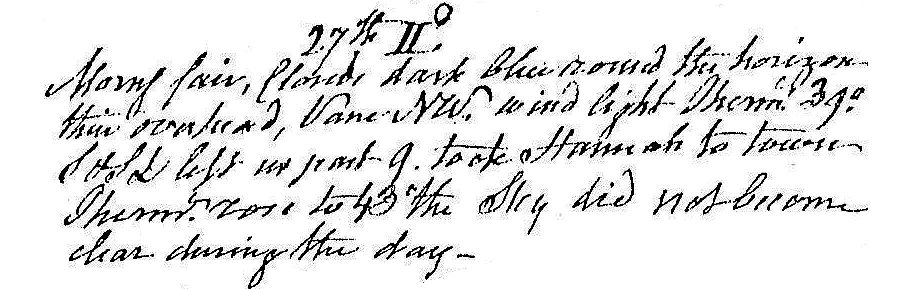 27th II°
Morng fair, Clouds dark blue round the horizon
thin overhead, Vane NW. wind light Therm. 39°
left us past 9. took Hannah to town
Therm. rose to 43° the Sky did not become
clear during the day -